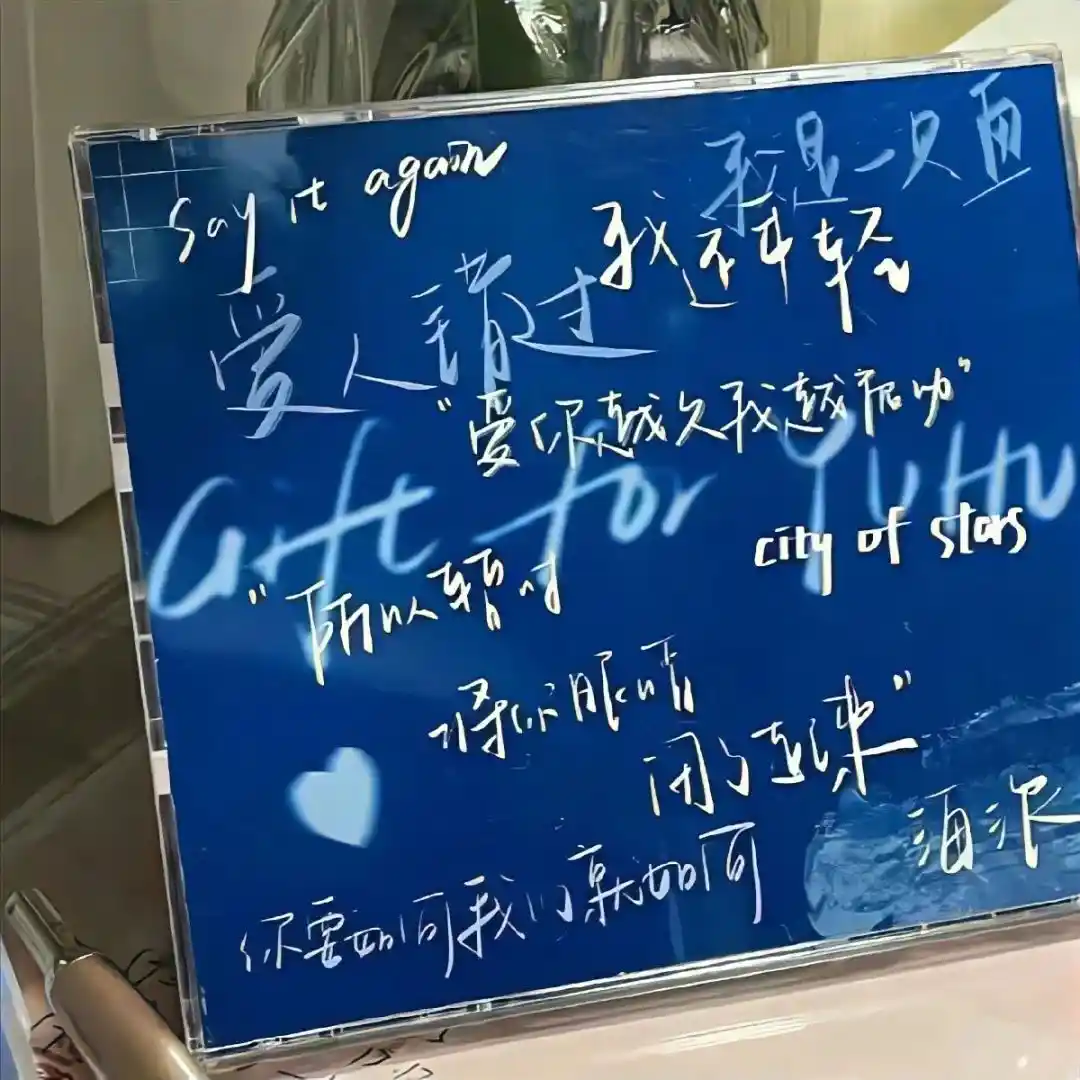 我是一只鱼
say it again
我还年轻
爱人错过
“爱你越久我越被动”
Gift for
city of stars
“所以暂时
将你眼睛
闭了起来”
海浪
你要如何我们就如何